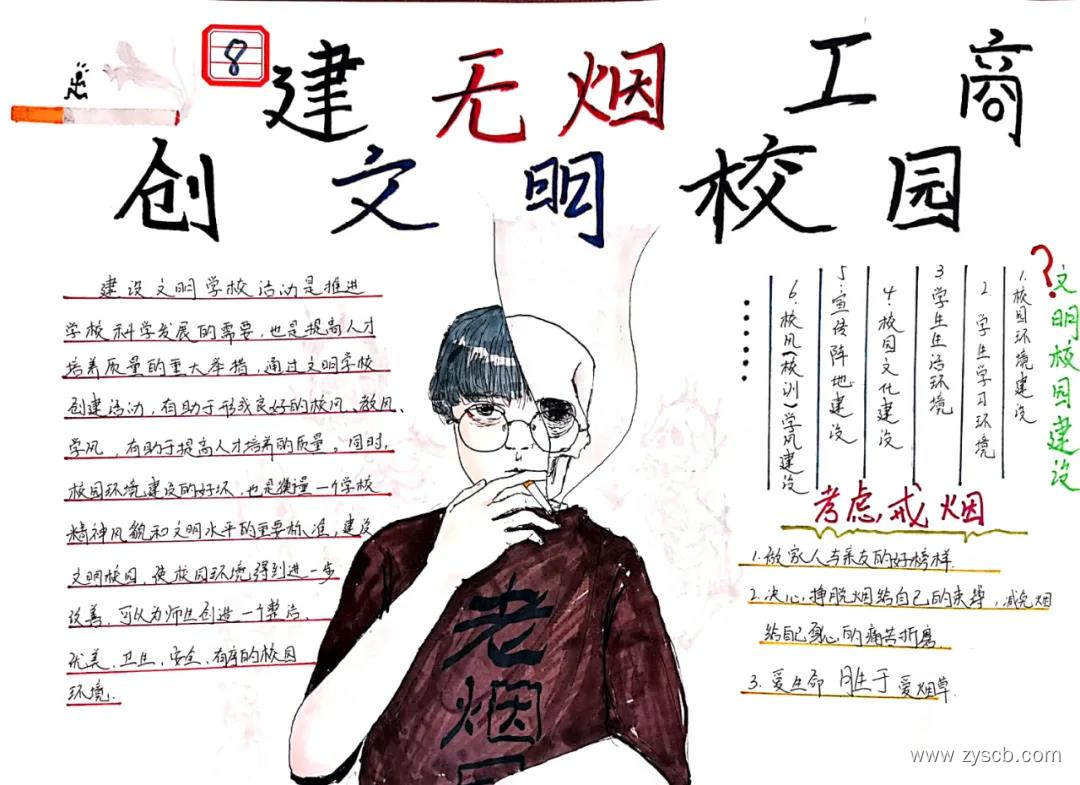 8
建无烟工商
创文明校园
建设文明学校活动是推进
学校科学发展的需要，也是提高人才
培养质量的重大举措，通过文明学校
创建活动，有助于形成良好的校风、教风、
学风，有助于提高人才培养的质量。同时，
校园环境建设的好坏，也是衡量一个学校
精神风貌和文明水平的重要标准，建设
文明校园，使校园环境得到进一步
改善，可以为师生创造一个整洁、
优美、卫生、安全、有序的校园
环境.
?文明校园建设
1.校园环境建设
2.学生学习环境
3.学生生活环境
4.校园文化建设
5.宣传阵地建设
6.校风(校训)学风建设
......
考虑戒烟
1.做家人与亲友的好榜样.
2.决心,挣脱烟给自己的束缚,减免烟
给自己身心的痛苦折磨
3.爱生命 胜于 爱烟草.
老
烟
www.zyscb.com